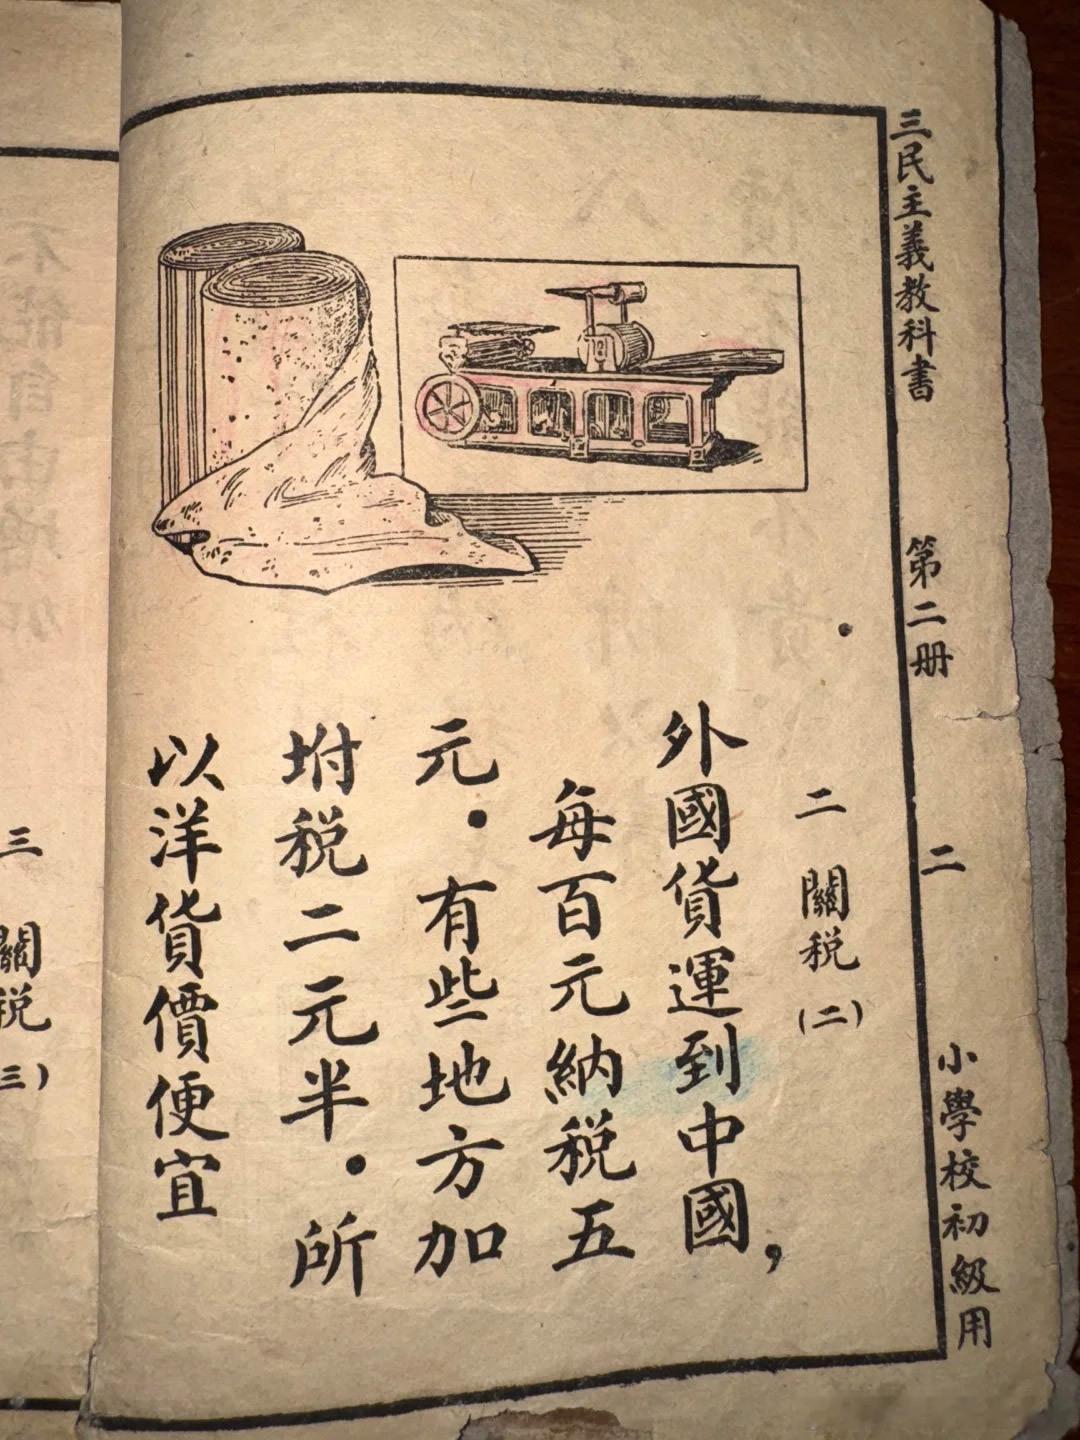 三民主義教科書 第二册 二 小學校初級用
二 關税 (二)
外國貨運到中國，
每百元納税五
元．有些地方加
坿税二元半．所
以洋貨價便宜
三 關税 (三)